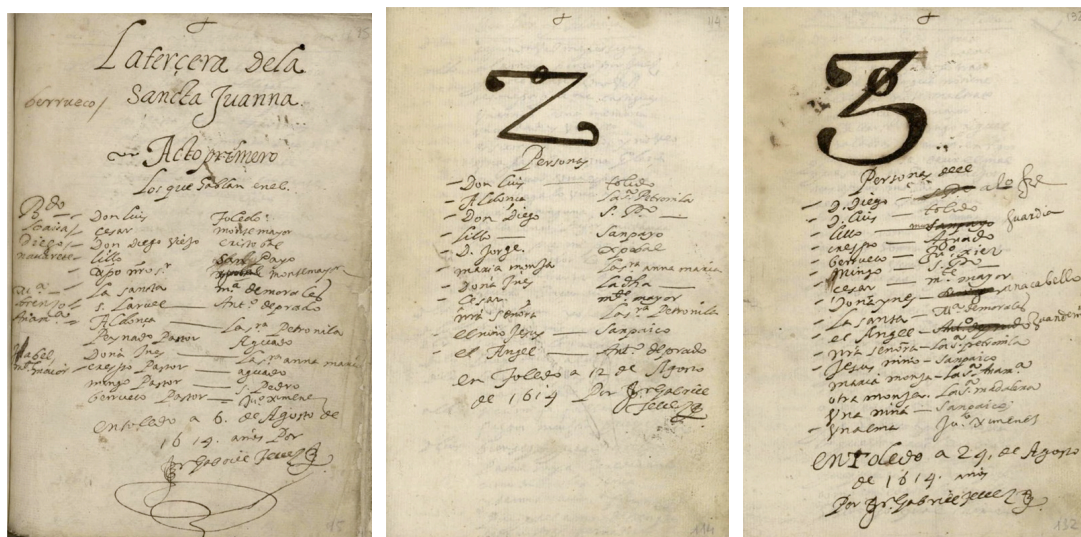 La terçera dela
Sancta Juanna.
berrueco/
Acto primero
Los que hablan enel.
Don Luis Toledo
cesar montemayor
Don diego viejo
Lillo San Payo
La sancta mª de morales
s. Laruel Antº de prado
Aldonça La sra Petronila
Peynado Pastor Aguado
Doña Ines La sra anna maria
crespo Pastor aguado
mingo Pastor S. Pedro
berrueco Pastor Juº ximenez
en toledo a 6. de Agosto de
1614. años Por
fr Gabriel Tellez
15
114
2
Personas
Don Luis toledo
Aldonça La sra Petronila
Don Diego S. Pº
Lillo Sanpayo
D. Jorge.
maria monja La sra anna maria
Doña Ines La dha
Cesar mte mayor
nra señora La sra Petronila
el niño Jesus Sanpaico
el Angel Antº de prado
en Toledo a 12 de Agosto
de 1614 Por fr Gabriel
Tellez
114
132
3
Personas deel
D. Diego
D. Luis toledo
Lillo guardia
crespo Aguado
berrueco
mingo S. Pº
cesar mte mayor
Doña ynes
La santa Mª de morales
el Angel
nra señora La sra petronila
Jesus niño Sanpaico
maria monja
otra monja. La sra madalena
Vna niña Sanpaico
Vn alma Juº ximenez
en Toledo a 24, de Agosto
de 1614. años
Por fr. Gabriel Tellez
132